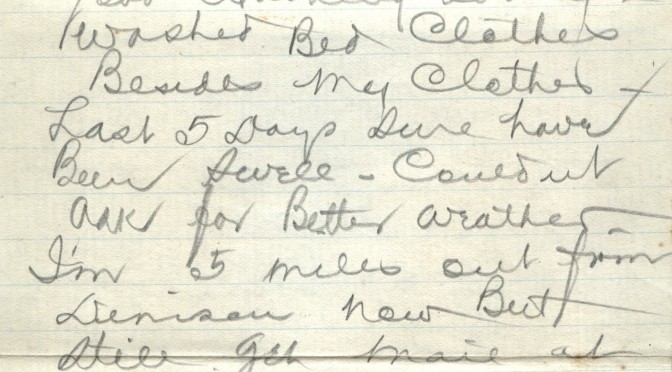 Washed Bed Clothes
Besides My Clothes -
Last 5 Days Sure have
Been Swell - Couldnt
Ask for Better Weather
I'm 5 miles out from
Denison now But
Still get mail at